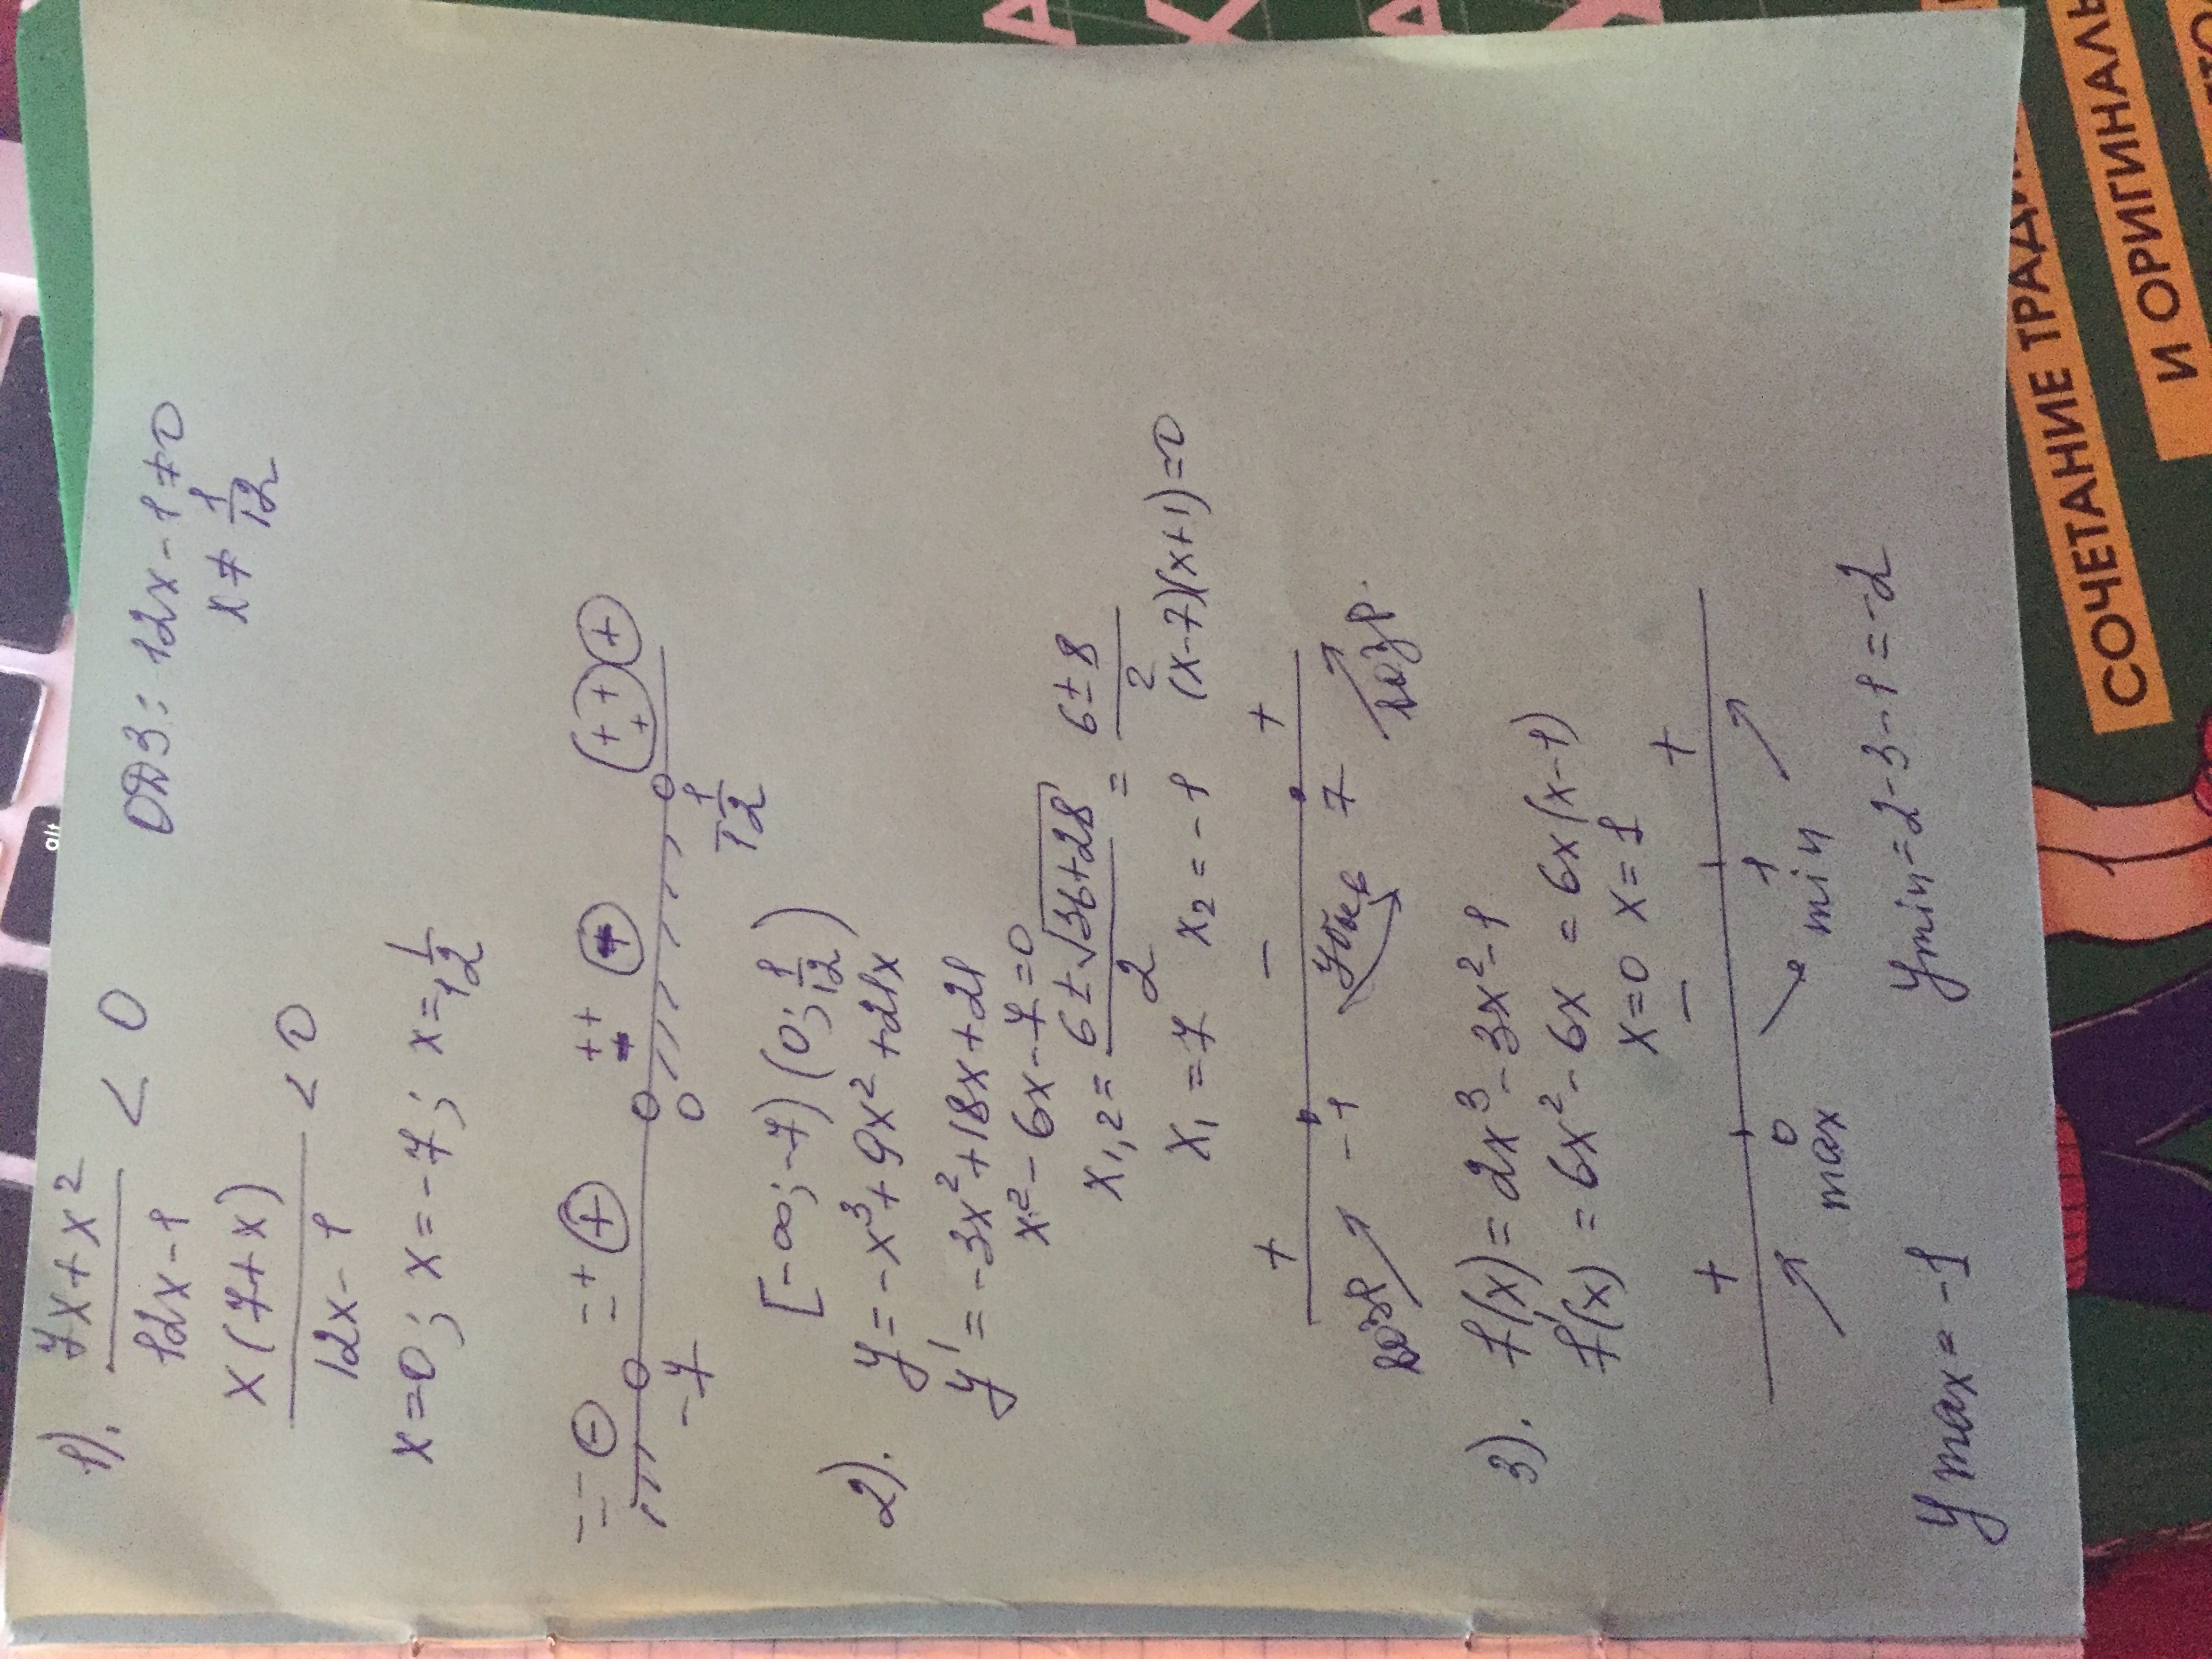 1). (7x + x²)/(12x - 1) < 0   ОДЗ: 12x - 1 ≠ 0
x ≠ 1/12
x(7+x)/(12x - 1) < 0
x=0; x=-7; x=1/12
- - - ⊖   - - + ⊕   + + ⊕   (+ + +) ⊕
-7   0   1/12
[-∞; -7) (0; 1/12)
2). y = -x³ + 9x² + 21x
y' = -3x² + 18x + 21
x² - 6x - 7 = 0
x₁,₂ = (6 ± √(36+28))/2 = (6 ± 8)/2
x₁ = 7   x₂ = -1   (x-7)(x+1)=0
+   -   +
-1   7
возр   убыв   возр.
3). f(x) = 2x³ - 3x² - 1
f'(x) = 6x² - 6x = 6x(x-1)
x=0   x=1
+   -   +
0   1
max   min
y max = -1   y min = 2 - 3 - 1 = -2
alt
СОЧЕТАНИЕ
И ОРИГИНАЛЬ